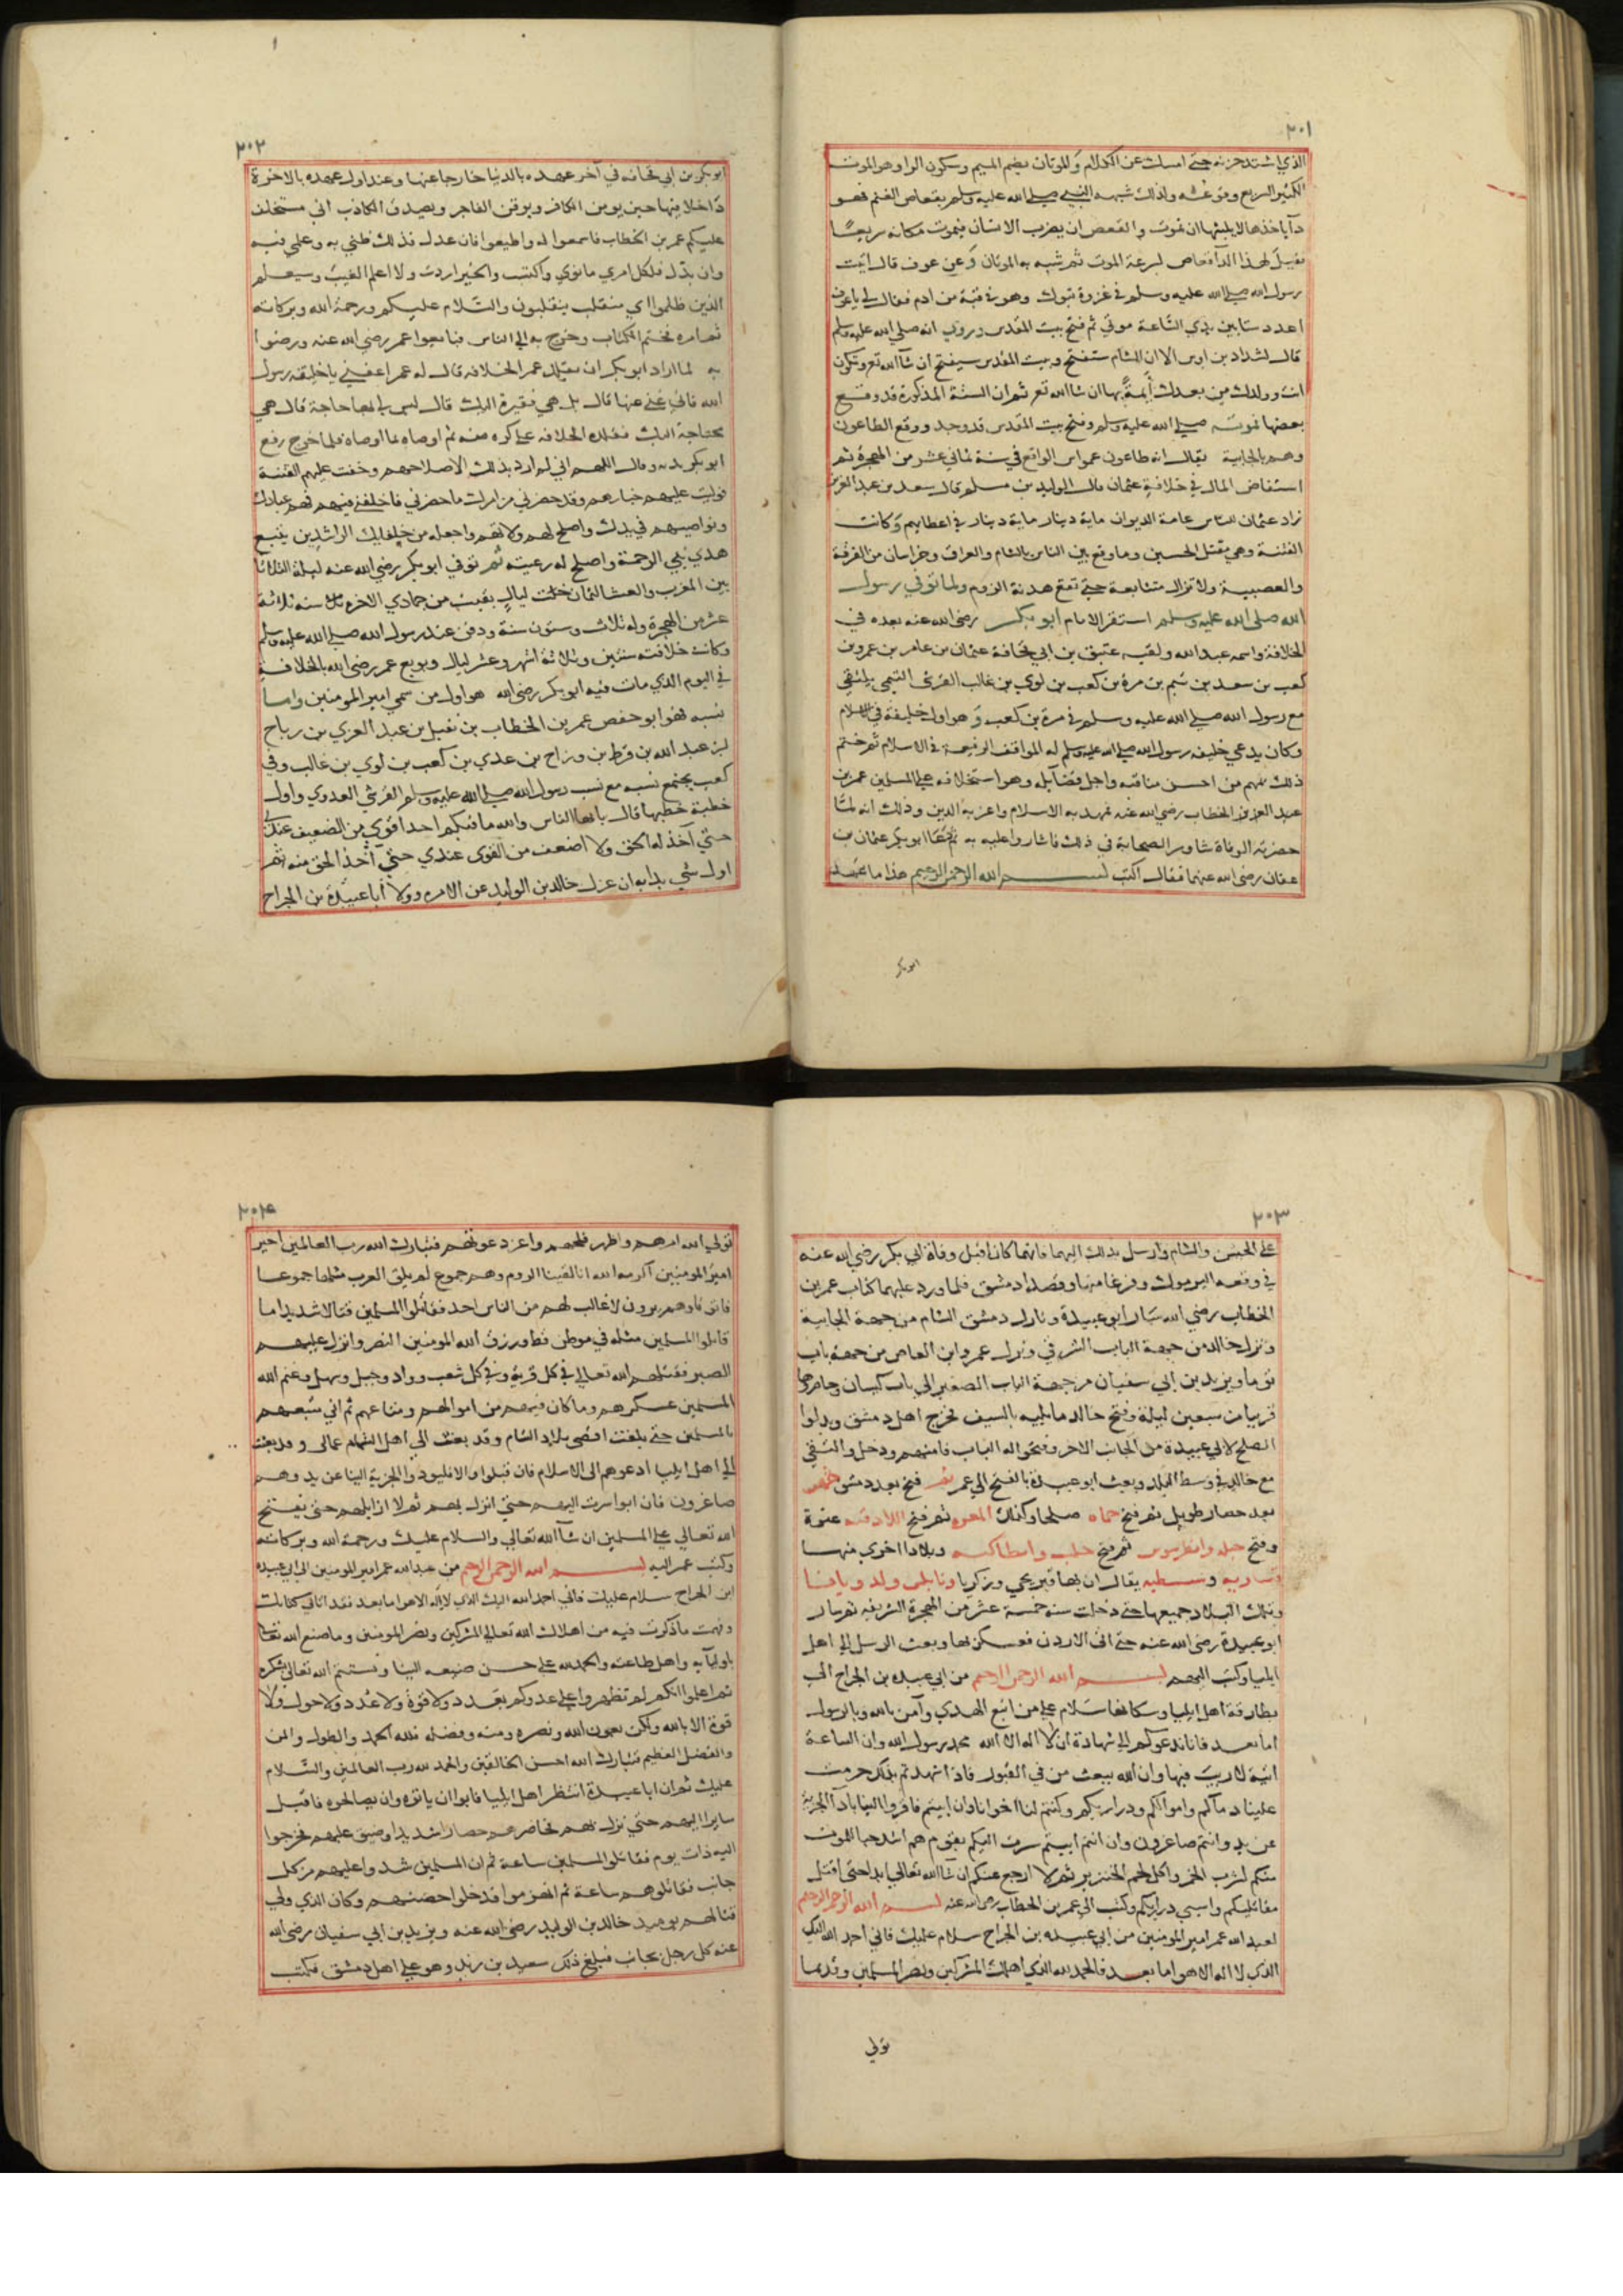 ٢٠١
الذي اشتد حزنه حتى امسك عن الكلام والموتان بضم الميم وسكون الواو هو الموت
الكثير السريع وقوعه ولذلك شبهه النبي صلي الله عليه وسلم بقعاص الغنم فهو
دآ ياخذها لا يلبثها ان تموت والقعص ان يضرب الانسان فيموت مكانه سريعًا
فقيل لهذا الدآ قعاص لسرعة الموت ثم شبه به الموتان وعن عوف قال اتيت
رسول الله صلي الله عليه وسلم في غزوة تبوك وهو في قبة من ادم فقال لي يا عوف
اعدد ستا بين يدي الساعة موتي ثم فتح بيت المقدس وروي انه صلي الله عليه وسلم
قال لشداد بن اوس الا ان الشام ستفتح وبيت المقدس سيفتح ان شآ الله تع وتكون
انت وولدك من بعدك أيمةً بها ان شا الله تع ثم ان الستة المذكورة قد وقع
بعضها موته صلي الله عليه وسلم وفتح بيت المقدس قد وجد ووقع الطاعون
وهم بالجابية يقال انه طاعون عمواس الواقع في سنة ثماني عشر من الهجرة ثم
استفاض المال في خلافة عثمان قال الوليد بن مسلم قال سعد بن عبد العزيز
زاد عثمان الناس عامة الديوان ماية دينار ماية دينار في اعطايهم وكانت
الفتنة وهي مقتل الحسين وما وقع بين الناس بالشام والعراق وخراسان من الفرقة
والعصبية ولا تزال متتابعة حتي تقع هدنة الروم ولما توفي رسول
الله صلي الله عليه وسلم استقر الامام ابو بكر رضي الله عنه بعده في
الخلافة واسمه عبد الله ولقبه عتيق بن ابي قحافة عثمان بن عامر بن عمرو بن
كعب بن سعد بن تيم بن مرة بن كعب بن لوي بن غالب القرشي التيمي يلتقي
مع رسول الله صلي الله عليه وسلم في مرة بن كعب وهو اول خليفة في الاسلام
وكان يدعي خليفة رسول الله صلي الله عليه وسلم له المواقف الرفيعة في الاسلام ثم ختم
ذلك بمهم من احسن مناقبه واجل فضايله وهو استخلافه علي المسلمين عمر بن
الخطاب رضي الله عنه فمهد به الاسلام واعز به الدين وذلك انه لما
حضرته الوفاة شاور الصحابة في ذلك فاشاروا عليه به ثم دعا ابو بكر عثمان بن
عفان رضي الله عنهما فقال اكتب بسم الله الرحمن الرحيم هذا ما عهد
ابو بكر
٢٠٢
ابو بكر بن ابي قحافه في آخر عهده بالدنيا خارجا عنها وعند اول عهده بالاخرة
داخلا فيها حين يومن الكافر ويوقن الفاجر ويصدق الكاذب اني مستخلف
عليكم عمر بن الخطاب فاسمعوا له واطيعوا فان عدل فذلك ظني به وعلمي فيه
وان بدّل فلكل امري ما نوي واكتسب والخير اردت ولا اعلم الغيب وسيعلم
الذين ظلموا اي منقلب ينقلبون والسلام عليكم ورحمة الله وبركاته
ثم امره فختم الكتاب وخرج به الي الناس فبايعوا عمر رضي الله عنه ورضوا
به لما اراد ابو بكر ان يقلد عمر الخلافه قال له عمر اعفني يا خليفة رسول
الله فاني غني عنها قال بل هي فقيرة اليك قال ليس لي بها حاجة قال هي
محتاجة اليك فقلده الخلافه علي كره منه ثم اوصاه بما اوصاه فلما خرج رفع
ابو بكر يديه وقال اللهم اني لم ارد بذلك الا صلاحهم وخفت عليهم الفتنة
فوليت عليهم خيارهم وقد حضرني من امرك ما حضرني فاخلفني فيهم فهم عبادك
ونواصيهم في يدك واصلح لهم ولاتهم واجعله من خلفايك الراشدين يتبع
هدي نبي الرحمة واصلح له رعيته ثم توفي ابو بكر رضي الله عنه ليلة الثلاثا
بين المغرب والعشا لثمان خلت ليالٍ بقيت من جمادي الاخره سنه ثلاثة
عشر من الهجرة وله ثلاث وستون سنة ودفن عند رسول الله صلي الله عليه وسلم
وكانت خلافته سنتين وثلاثة اشهر وعشر ليال وبويع عمر رضي الله بالخلافة
في اليوم الذي مات فيه ابو بكر رضي الله هو اول من سمي امير المومنين واما
نسبه فهو ابو حفص عمر بن الخطاب بن نفيل بن عبد العزي بن رباح
بن عبد الله بن قرط بن رزاح بن عدي بن كعب بن لوي بن غالب وفي
كعب يجتمع نسبه مع نسب رسول الله صلي الله عليه وسلم القرشي العدوي واول
خطبة خطبها قال يا ايها الناس والله ما فيكم احدا اقوي من الضعيف عندي
حتي آخذ له الحق ولا اضعف من القوي عندي حتي آخذ الحق منه ثم
اول شي بدا به ان عزل خالد بن الوليد عن الامره وولا أبا عبيدة بن الجراح
٢٠٣
علي الجيش والشام وارسل بذلك اليهما فانهما كانا قبل وفاة ابي بكر رضي الله عنه
في وقعه اليرموك وفرغا منها وقصدا دمشق فلما ورد عليهما كتاب عمر بن
الخطاب رضي الله سار ابو عبيدة ونازل دمشق الشام من جهة الجابية
ونزل خالد من جهة الباب الشرقي ونزل عمرو ابن العاص من جهة باب
توما ويزيد بن ابي سفيان من جهة الباب الصغير الي باب كيسان وحاصروها
قريبا من سبعين ليلة وفتح خالد ما يليه بالسيف فخرج اهل دمشق وبذلوا
الصلح لابي عبيدة من الجانب الاخر وفتحوا له الباب فامنهم ودخل والتقي
مع خالد في وسط البلد وبعث ابو عبيدة بالفتح الي عمر ثم فتح بعد دمشق حمص
بعد حصار طويل ثم فتح حماه صلحا وكذلك المعره ثم فتح اللاذقيه عنوة
وفتح جبله وانطرسوس ثم فتح حلب وانطاكيه وبلادا اخري منها
قيساريه وسبسطيه يقال ان بها قبر يحيي وزكريا ونابلس ولد ويافا
وتلك البلاد جميعها حتي دخلت سنه خمسة عشر من الهجرة الشريفه ثم سار
ابو عبيدة رضي الله عنه حتي اتي الاردن فعسكر بها وبعث الرسل الي اهل
ايليا وكتب اليهم بسم الله الرحمن الرحيم من ابي عبيده بن الجراح الي
بطارقة اهل ايليا وسكانها سلام علي من اتبع الهدي وآمن بالله وبالرسول
اما بعد فانا ندعوكم الي شهادة ان لا اله الا الله محمد رسول الله وان الساعة
اتية لا ريب فيها وان الله يبعث من في القبور فاذا شهدتم بذلك حرمت
علينا دمآكم واموالكم وذراريكم وكنتم لنا اخوانا وان ابيتم فاقروا الينا بادآ الجزية
عن يد وانتم صاغرون وان انتم ابيتم سرت اليكم بقوم هم اشد حبا للموت
منكم لشرب الخمر واكل لحم الخنزير ثم لا ارجع عنكم ان شآ الله تعالي ابدا حتي اقتل
مقاتليكم واسبي ذراريكم وكتب الي عمر بن الخطاب رضي الله عنه بسم الله الرحمن الرحيم
لعبد الله عمر امير المومنين من ابي عبيده بن الجراح سلام عليك فاني احمد الله اليك
الذي لا اله الا هو اما بعد فالحمد لله الذي اهلك المشركين ونصر المسلمين وقديما
تولي
٢٠٤
تولي الله امرهم واظهر فلجهم واعز دعوتهم فتبارك الله رب العالمين اخبر
امير المومنين اكرمه الله انا لقينا الروم وهم جموع لم يلق العرب مثلها جموعا
فاتوا وهم يرون لا غالب لهم من الناس احد فقاتلوا المسلمين قتالا شديدا ما
قاتلوا المسلمين مثله في موطن قط ورزق الله المومنين النصر وانزل عليهم
الصبر فقتلهم الله تعالي في كل قرية وفي كل شعب وواد وجبل وسهل وغنم الله
المسلمين عسكرهم وما كان فيهم من اموالهم ومتاعهم ثم اني تتبعتهم
بالمسلمين حتي بلغت اقصي بلاد الشام وقد بعثت الي اهل الشام عمالي وقد بعثت
الي اهل ايليا ادعوهم الي الاسلام فان قبلوا والا فليودوا الجزية الينا عن يد وهم
صاغرون فان ابوا سرت اليهم حتي انزل بهم ثم لا ازايلهم حتي يفتح
الله تعالي علي المسلمين ان شآ الله تعالي والسلام عليك ورحمة الله وبركاته
وكتب عمر اليه بسم الله الرحمن الرحيم من عبد الله عمر امير المومنين الي ابي عبيده
ابن الجراح سلام عليك فاني احمد الله اليك الذي لا اله الا هو اما بعد فقد اتاني كتابك
وفهمت ما ذكرت فيه من اهلاك الله تعالي المشركين ونصر المومنين وما صنع الله تعالي
باوليآيه واهل طاعته والحمد لله علي حسن صنيعه الينا ويستتم الله تعالي بشكره
ثم اعلموا انكم لم تظهروا علي عدوكم بعدد ولا قوة ولا عُدد ولا حول ولا
قوة الا بالله ولكن بعون الله ونصره ومنه وفضله فلله الحمد والطول والمن
والفضل العظيم فتبارك الله احسن الخالقين والحمد لله رب العالمين والسلام
عليك ثم ان ابا عبيدة انتظر اهل ايليا فابوا ان ياتوه وان يصالحوه فاقبل
سايرا اليهم حتي نزل بهم فحاصرهم حصارا شديدا وضيق عليهم فخرجوا
اليه ذات يوم فقاتلوا المسلمين ساعة ثم ان المسلمين شدوا عليهم من كل
جانب فقاتلوهم ساعة ثم انهزموا فدخلوا حصنهم وكان الذي ولي
قتالهم يوميذ خالد بن الوليد رضي الله عنه ويزيد بن ابي سفيان رضي الله
عنه كل رجل بجانب فبلغ ذلك سعيد بن زيد وهو علي اهل دمشق فكتب